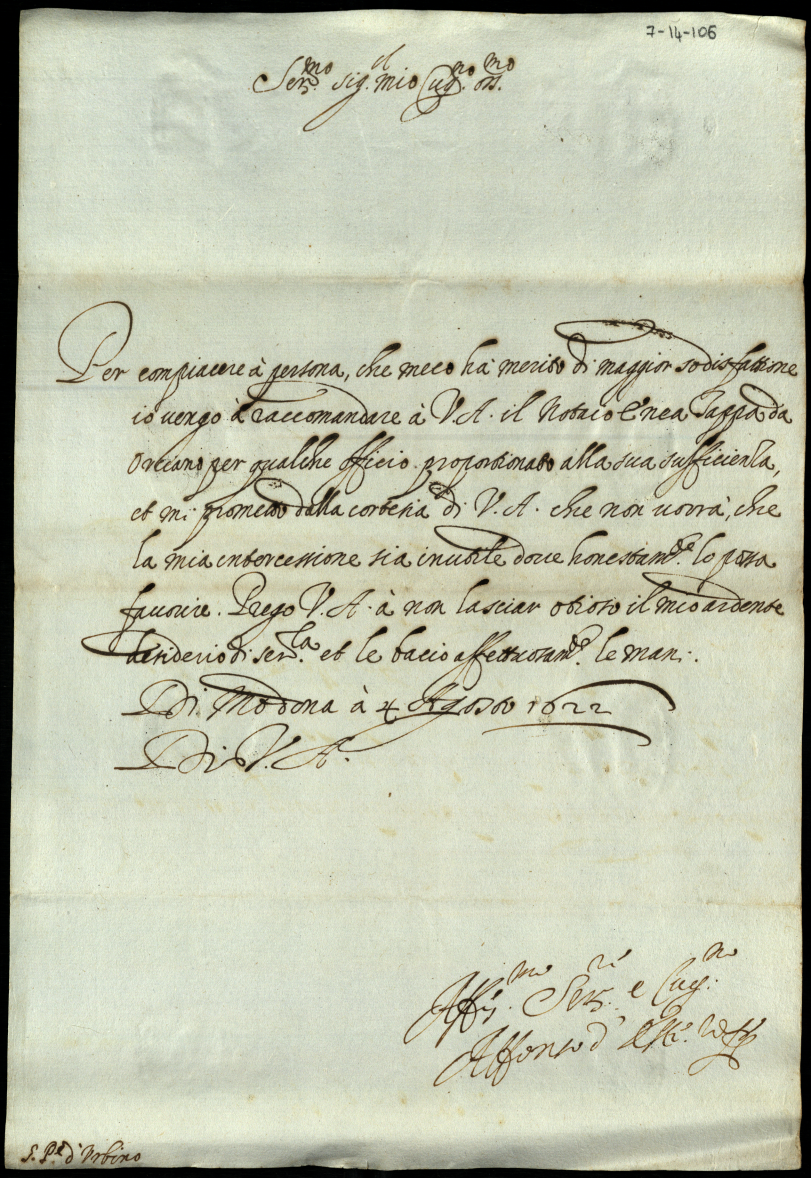 7-14-106
Ser.mo sig.r mio Cug.no oss.mo
Per compiacere à persona, che meco hà merito di maggior sodisfattione
io vengo à raccomandare à V. A. il Notaio Enea Zappa da
Orciano per qualche officio proportionato alla sua sufficienza,
et mi prometto dalla cortesia di V. A. che non vorrà, che
la mia intercessione sia inutile dove honestam.te lo possa
favorire. Prego V. A. à non lasciar otioso il mio ardente
desiderio di ser.la et le bacio affettuosam.te le mani.
Di Modona à 4 Agosto 1622
Di V. A.
Aff.mo Ser.re e Cug.no
Alfonso d'Este
S. P.e d'Urbino